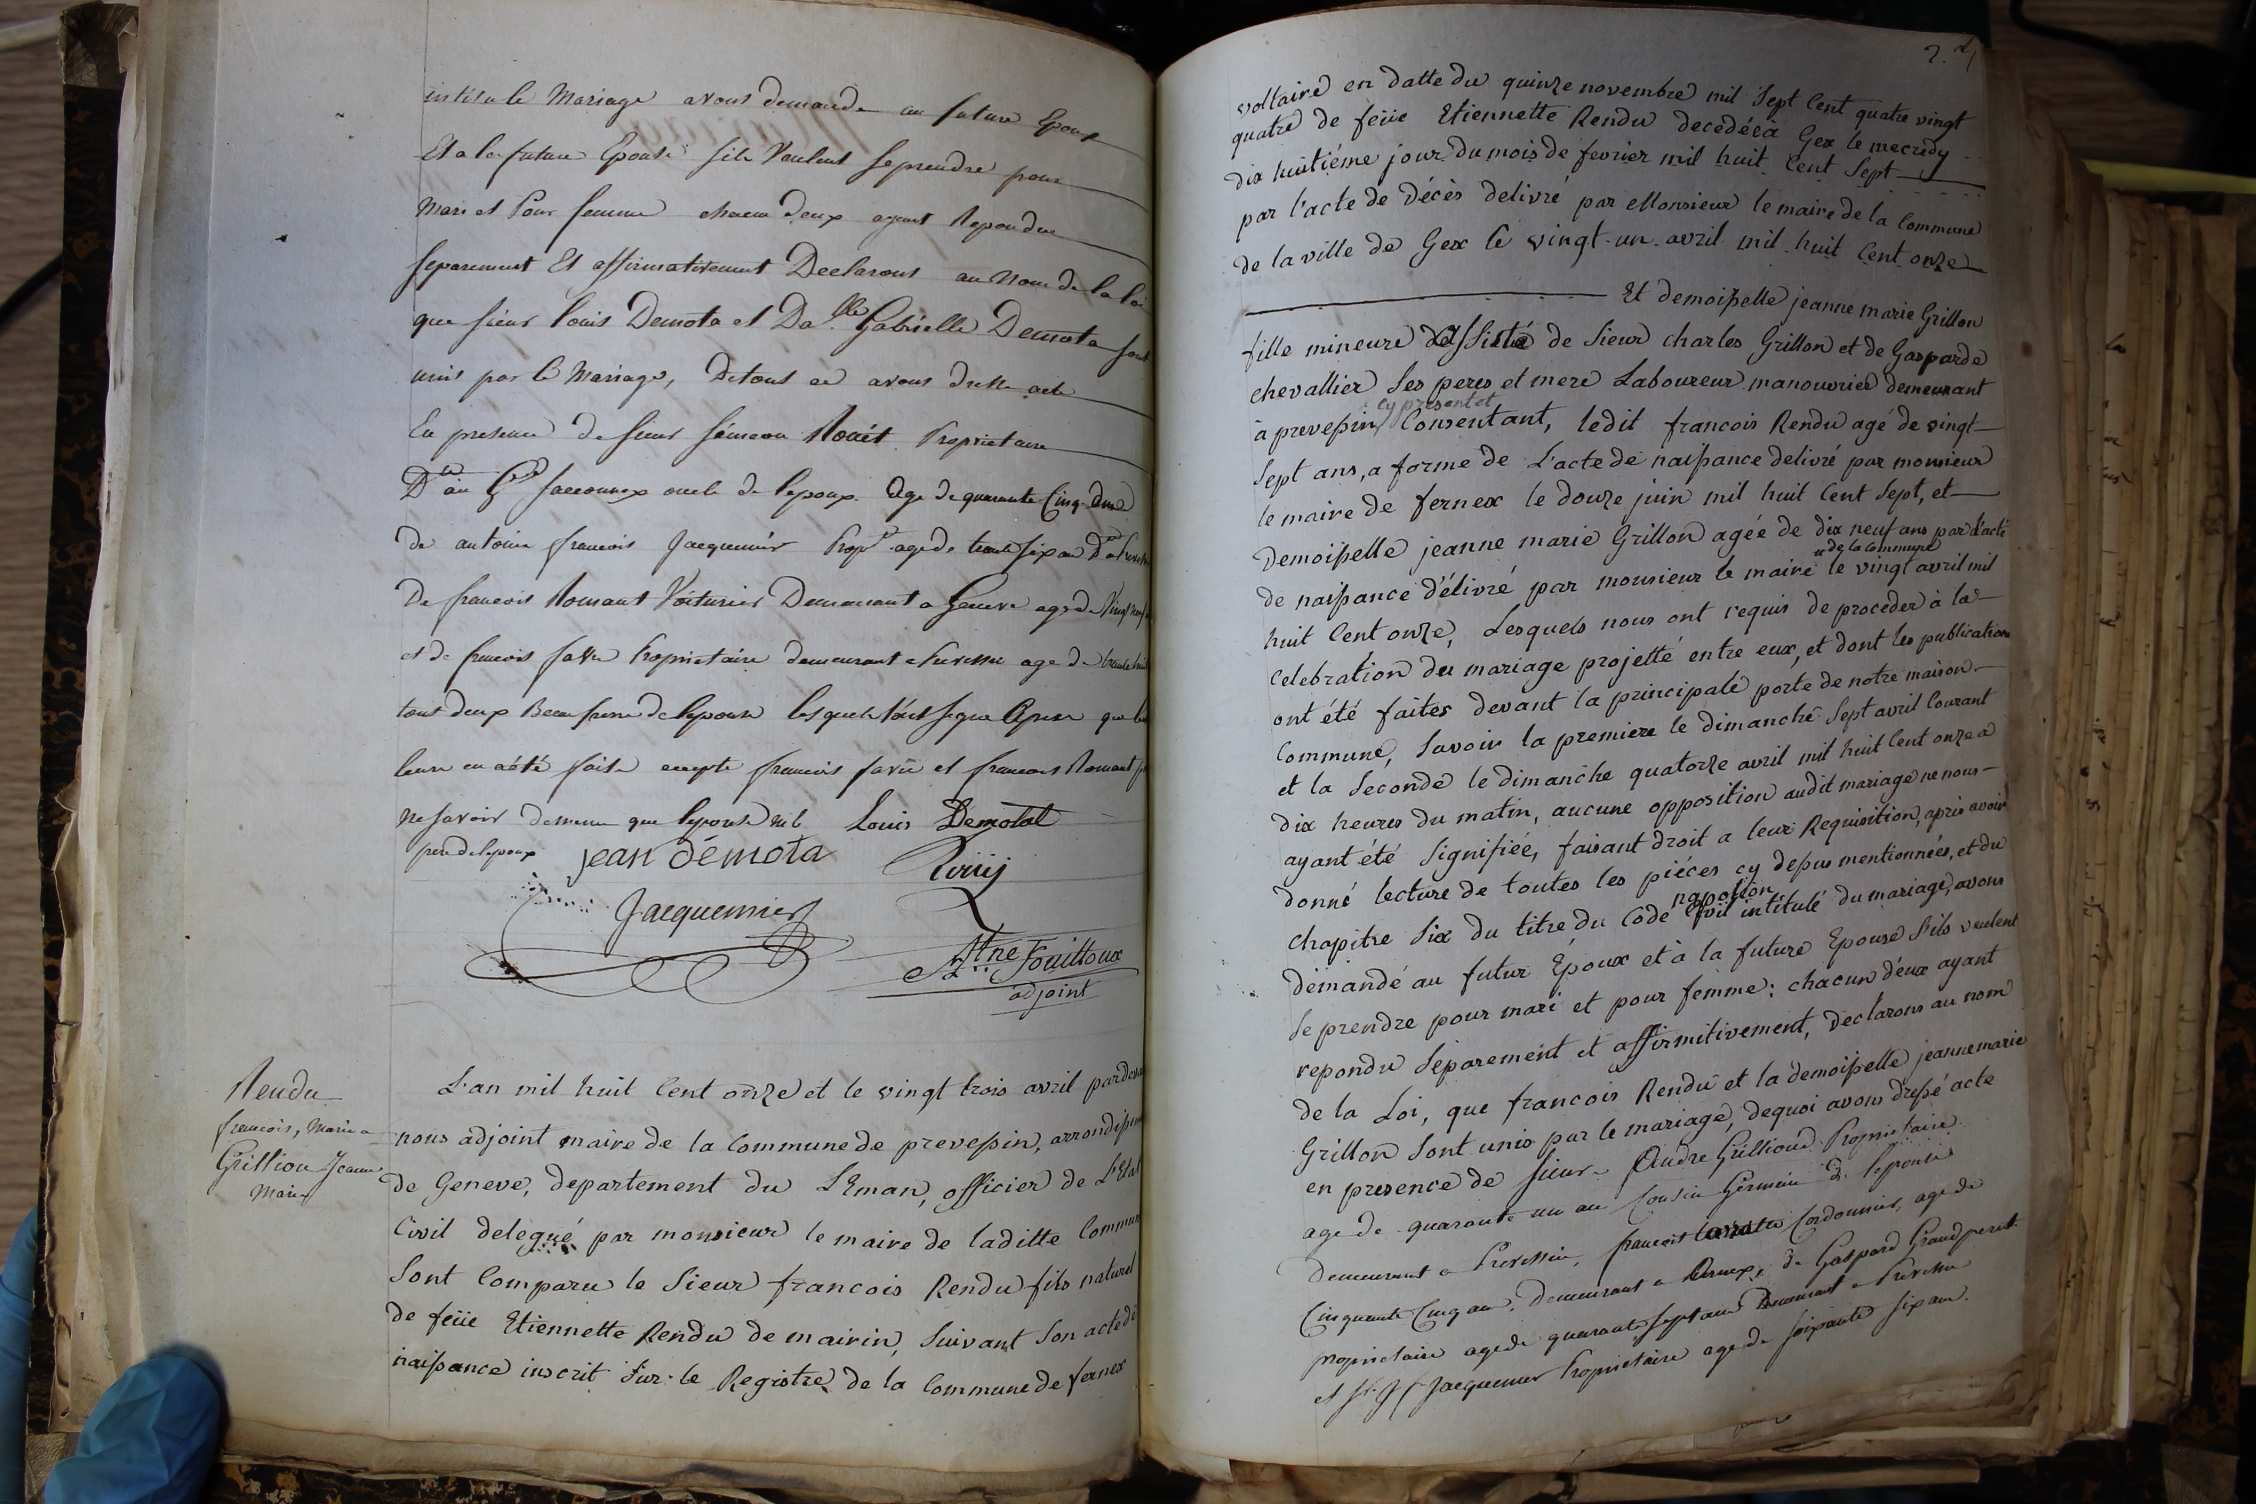 intitule Mariage avons demande au future Epoux
Et a la future Epouse sils Veulent se prendre pour
Mari et Pour femme chacun deux ayant Repondu
separement Et affirmativement Declarons au Nom de la loi
que sieur Louis Demota et Da.lle Gabrielle Demota sont
unis par le Mariage, De tous ce avons dresse acte
En presence de sieur Rouét Proprietaire
oncle de lepoux age de quarante Cinq ans
de antoine francois Jacquemier Prop.re age de trente six an
De francois Romant Voiturier Demeurant a Geneve age de Vingt
et de francois favre Proprietaire demeurant a Prevessin age de trente
tout deux Beau frere de lepouse lesquels Apres que
leure en a été faite excepte francois favre et francois Romant
ne savoir de meme que lepouse Louis Demotal
pere de lepoux jean démota
Jacquemier
Fouilloux
adjoint
Rendu
francois, Marie a
Grillion Jeanne
Marie
L'an mil huit Cent onze et le vingt trois avril pardevant
nous adjoint maire de la Commune de prevessin, arrondissem
de Geneve, departement du LEman, officier de L'Etat
Civil delegué par monsieur le maire de laditte Commune
Sont Comparu le Sieur francois Rendu fils naturel
de feüe Etiennette Rendu de mairin, Suivant Son acte de
naissance inscrit Sur le Registre de la Commune de fernex
voltaire en datte du quinze novembre mil Sept Cent quatre vingt
quatre de feüe Etiennette Rendu decedée a Gex le mecredy
dix huitiéme jour du mois de fevrier mil huit Cent Sept
par l'acte de Décès delivré par Monsieur le maire de la Commune
de la ville de Gex le vingt-un avril mil huit Cent onze
Et demoiselle jeanne marie Grillon
fille mineure de Sieur charles Grillon et de Gasparde
chevallier Ses peres et mere Laboureur manouvrier demeurant
cy present et
à prevessin Consentant, ledit francois Rendu agé de vingt
Sept ans, a forme de L'acte de naissance delivré par monsieur
le maire de fernex le douze juin mil huit Cent Sept, et
Demoiselle jeanne marie Grillon agée de dix neuf ans par l'acte
de la Commune
de naissance délivré par monsieur le maire le vingt avril mil
huit Cent onze, Lesquels nous ont requis de proceder à la
Celebration du mariage projetté entre eux, et dont les publications
ont été faites devant la principale porte de notre maison
Commune, Savoir la premiere le dimanche Sept avril Courant
et la Seconde le dimanche quatorze avril mil huit Cent onze a
dix heures du matin, aucune opposition audit mariage ne nous
ayant été Signifiée, faisant droit a leur Requisition, apris avoir
donné lecture de toutes les piéces cy depus mentionnées, et du
napolion
chapitre Six du titre du Code Civil intitulé du mariage, avons
demandé au futur Epoux et à la future Epouse S'ils veulent
Se prendre pour mari et pour femme: chacun d'eux ayant
repondu Séparement et affirmitivement, Declarons au nom
de la Loi, que francois Rendu et la demoiselle jeanne marie
Grillon Sont unis par le mariage, dequoi avons drepé acte
en presence de Sieur Andre Grillion Proprietaire
age de quarante un an Cousin Germain de lepouse
demeurant a Prevessin, francois Cordonnier, age de
Cinquante Cinq an, demeurant a de Gaspard Grandperret
proprietaire age de quarante sept ans Demeurant a Prevessin
et Jacquemier Proprietaire age de soixante six an.